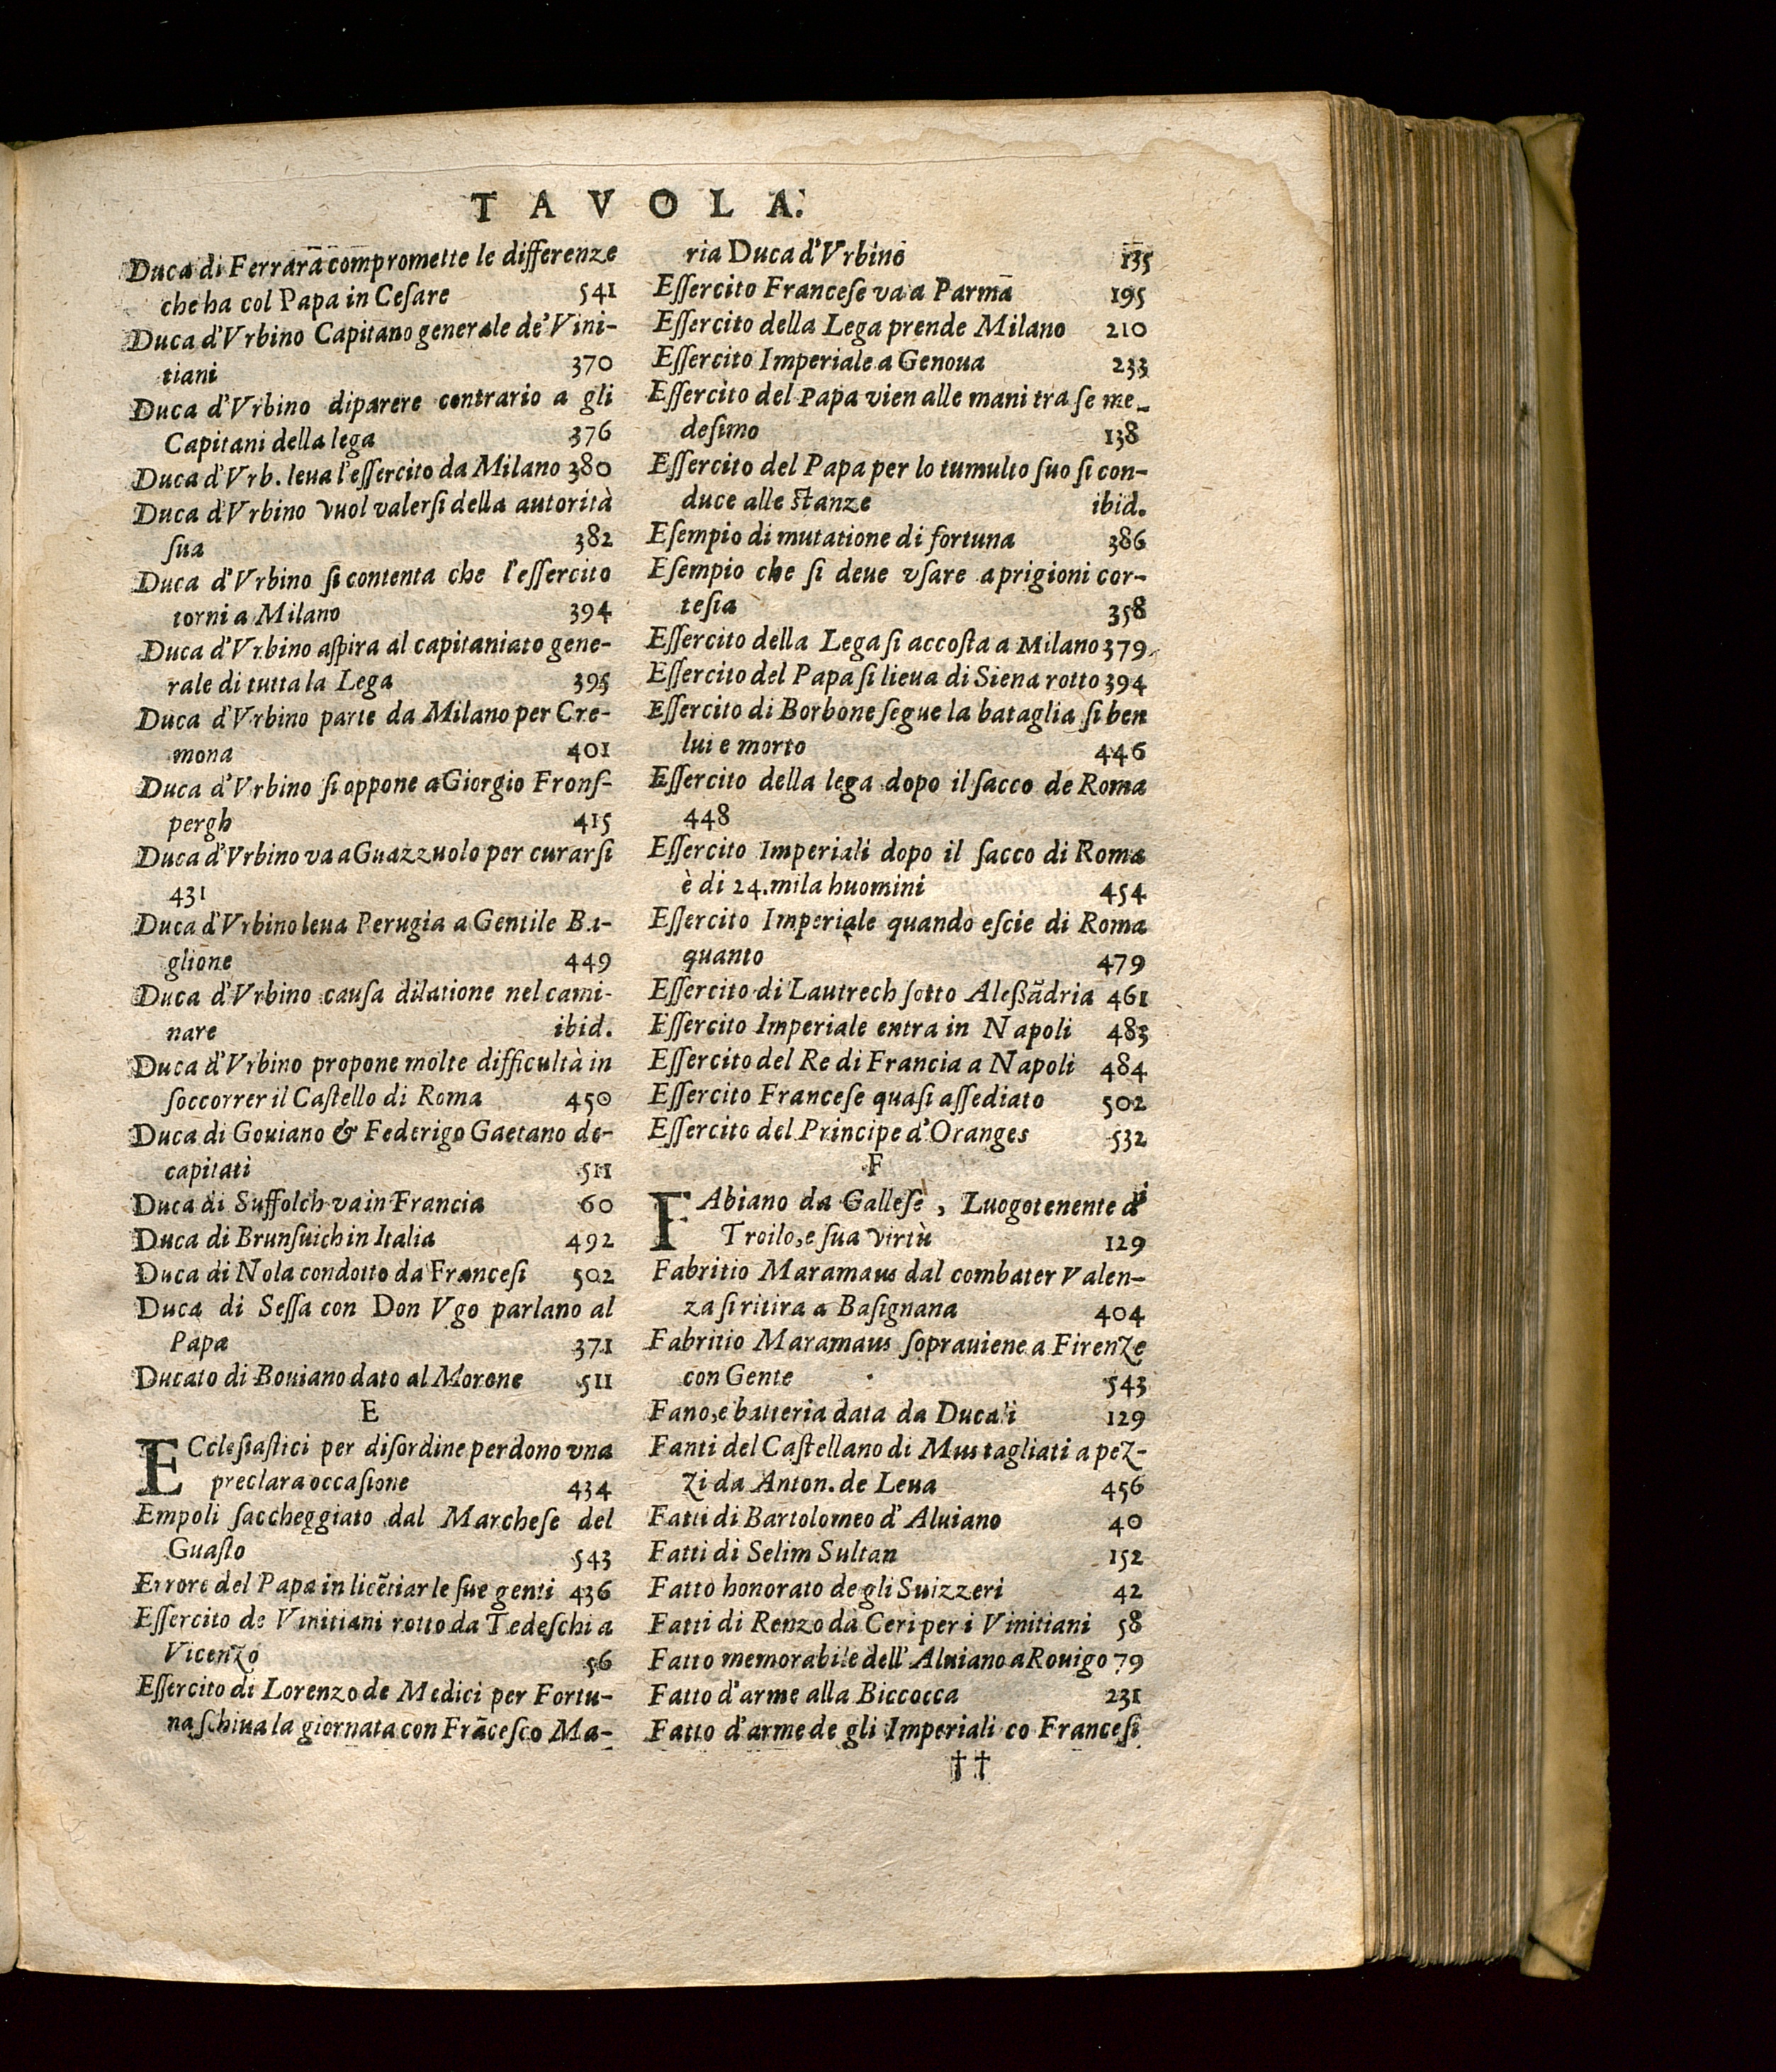 TAVOLA.
Duca di Ferrara compromette le differenze
che ha col Papa in Ceſare 541
Duca d'Vrbino Capitano generale de' Vini-
tiani 370
Duca d'Vrbino di parere contrario a gli
Capitani della lega 376
Duca d'Vrb. leua l'eſſercito da Milano 380
Duca d'Vrbino vuol valerſi della autorità
ſua 382
Duca d'Vrbino ſi contenta che l'eſſercito
torni a Milano 394
Duca d'Vrbino aſpira al capitaniato gene-
rale di tutta la Lega 395
Duca d'Vrbino parte da Milano per Cre-
mona 401
Duca d'Vrbino ſi oppone a Giorgio Fronſ-
pergh 415
Duca d'Vrbino va a Guazzuolo per curarſi
431
Duca d'Vrbino leua Perugia a Gentile Ba-
glione 449
Duca d'Vrbino cauſa dilatione nel cami-
nare ibid.
Duca d'Vrbino propone molte difficultà in
ſoccorrer il Caſtello di Roma 450
Duca di Gouiano & Federigo Gaetano de-
capitati 511
Duca di Suffolch va in Francia 60
Duca di Brunſuich in Italia 492
Duca di Nola condotto da Franceſi 502
Duca di Seſſa con Don Vgo parlano al
Papa 371
Ducato di Bouiano dato al Morone 511
E
ECcleſiaſtici per diſordine perdono vna
preclara occaſione 434
Empoli ſaccheggiato dal Marcheſe del
Guaſto 543
Errore del Papa in licẽtiar le ſue genti 436
Eſſercito de Vinitiani rotto da Tedeſchi a
Vicenzo 56
Eſſercito di Lorenzo de Medici per Fortu-
na ſchiua la giornata con Frãceſco Ma-
ria Duca d'Vrbino 135
Eſſercito Franceſe va a Parma 195
Eſſercito della Lega prende Milano 210
Eſſercito Imperiale a Genoua 233
Eſſercito del Papa vien alle mani tra ſe me-
deſimo 138
Eſſercito del Papa per lo tumulto ſuo ſi con-
duce alle ſtanze ibid.
Eſempio di mutatione di fortuna 386
Eſempio che ſi deue vſare a prigioni cor-
teſia 358
Eſſercito della Lega ſi accoſta a Milano 379
Eſſercito del Papa ſi lieua di Siena rotto 394
Eſſercito di Borbone ſegue la bataglia ſi ben
lui e morto 446
Eſſercito della lega dopo il ſacco de Roma
448
Eſſercito Imperiali dopo il ſacco di Roma
è di 24. mila huomini 454
Eſſercito Imperiale quando eſcie di Roma
quanto 479
Eſſercito di Lautrech ſotto Aleßãdria 461
Eſſercito Imperiale entra in Napoli 483
Eſſercito del Re di Francia a Napoli 484
Eſſercito Franceſe quaſi aſſediato 502
Eſſercito del Principe d'Oranges 532
F
FAbiano da Galleſe, Luogotenente di
Troilo, e ſua virtù 129
Fabritio Maramaus dal combater Valen-
za ſi ritira a Baſignana 404
Fabritio Maramaus ſoprauiene a Firenze
con Gente 543
Fano, e batteria data da Ducali 129
Fanti del Caſtellano di Mus tagliati a pez-
zi da Anton. de Leua 456
Fatti di Bartolomeo d'Aluiano 40
Fatti di Selim Sultan 152
Fatto honorato de gli Suizzeri 42
Fatti di Renzo da Ceri per i Vinitiani 58
Fatto memorabile dell'Aluiano a Rouigo 79
Fatto d'arme alla Biccocca 231
Fatto d'arme de gli Imperiali co Franceſi
††